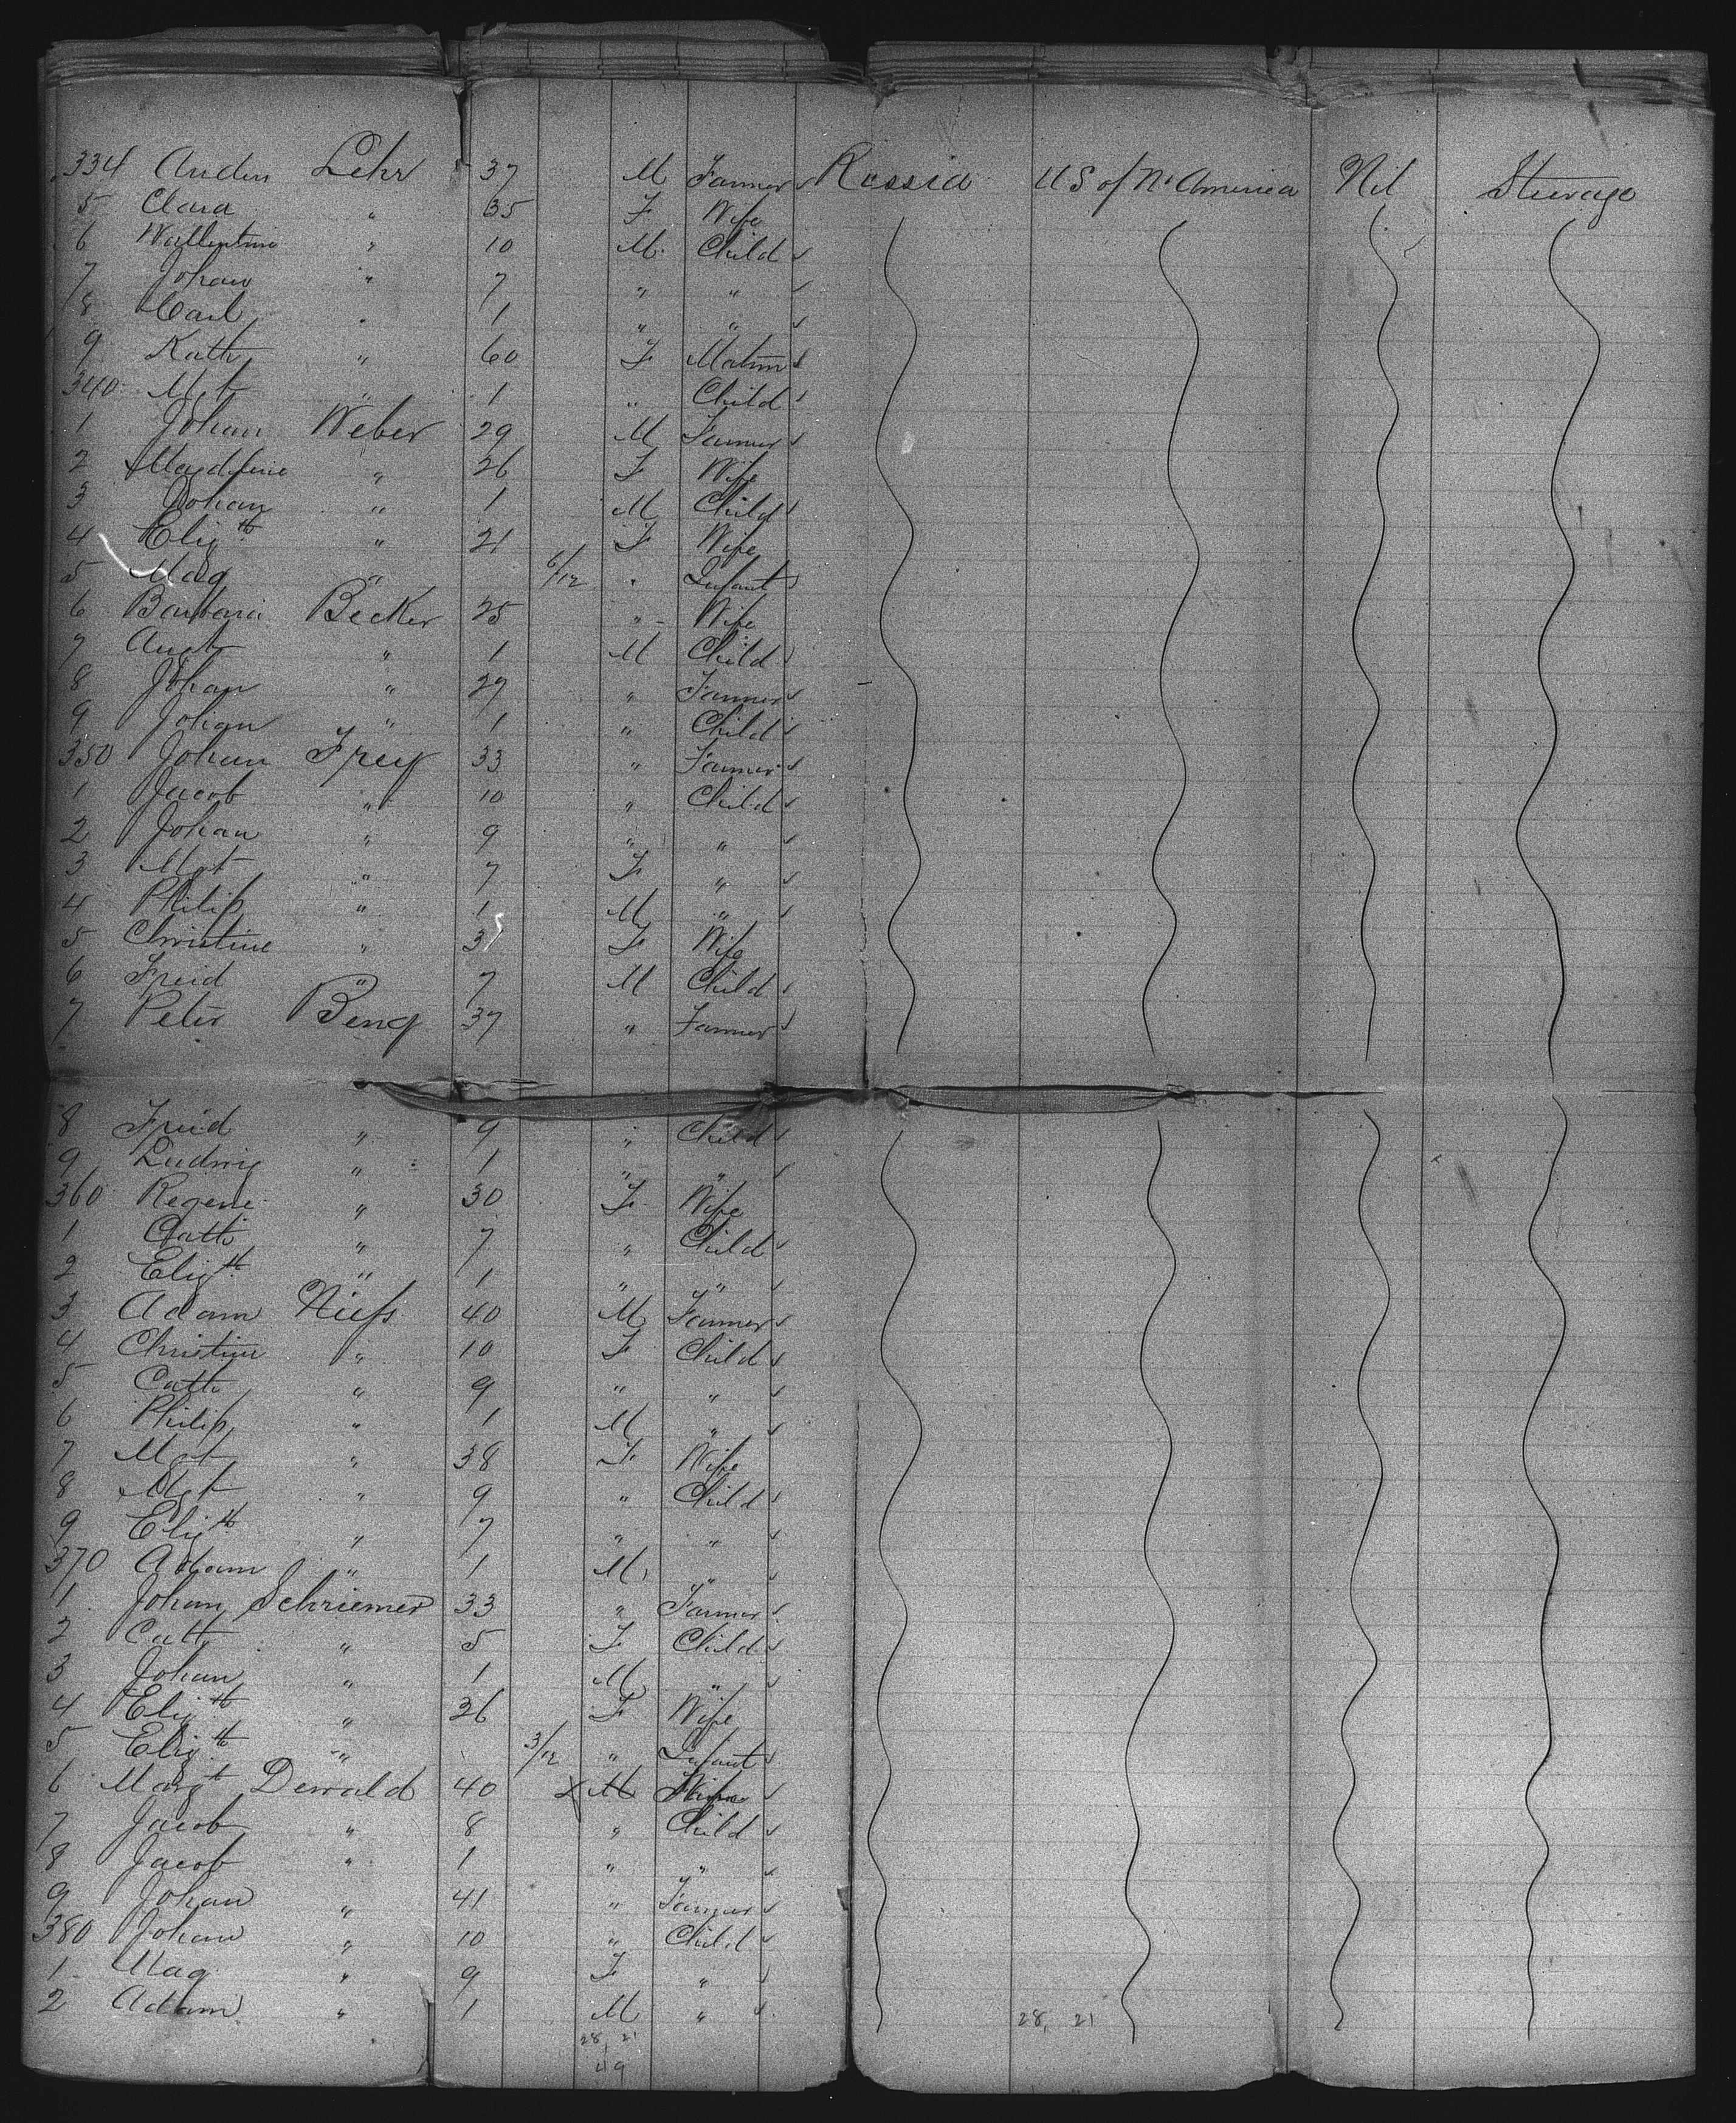 334 Anden Lehr 37 M Farmer Russia U S of N. America Nil Steerage
5 Clara " 35 F Wife
6 Wallentine " 10 M Child
7 Johan " 7 " "
8 Carl " 1 " "
9 Kath " 60 F Matron
340 Mgt " 1 " Child
1 Johan Weber 29 M Farmer
2 Magdlene " 26 F Wife
3 Johan " 1 M Child
4 Elizth " 21 F Wife
5 Mag " 6/12 " Infant
6 Barbara Becker 25 " Wife
7 Augt " 1 M Child
8 Johan " 29 " Farmer
9 Johan " 1 " Child
350 Johan Frey 33 " Farmer
1 Jacob " 10 " Child
2 Johan " 9 " "
3 Mgt " 7 F "
4 Philip " 1 M "
5 Christine " 31 F Wife
6 Freid " 7 M Child
7 Peter Beng 37 " Farmer
8 Freid " 9 " Child
9 Ludwig " 1 " "
360 Regene " 30 F Wife
1 Cath " 7 " Child
2 Elizth " 1 " "
3 Adam Niefs 40 M Farmer
4 Christine " 10 F Child
5 Cath " 9 " "
6 Philip " 1 M "
7 Mgt " 38 F Wife
8 Mgt " 9 " Child
9 Elizth " 7 " "
370 Adam " 1 M "
1 Johan Schriemer 33 " Farmer
2 Cath " 5 F Child
3 Johan " 1 M "
4 Elizth " 26 F Wife
5 Elizth " 3/12 " Infant
6 Margt Dewald 40 x M Wife
7 Jacob " 8 " Child
8 Jacob " 1 " "
9 Johan " 41 " Farmer
380 Johan " 10 " Child
1 Mag " 9 F "
2 Adam " 1 M "
28, 21 28, 21
49